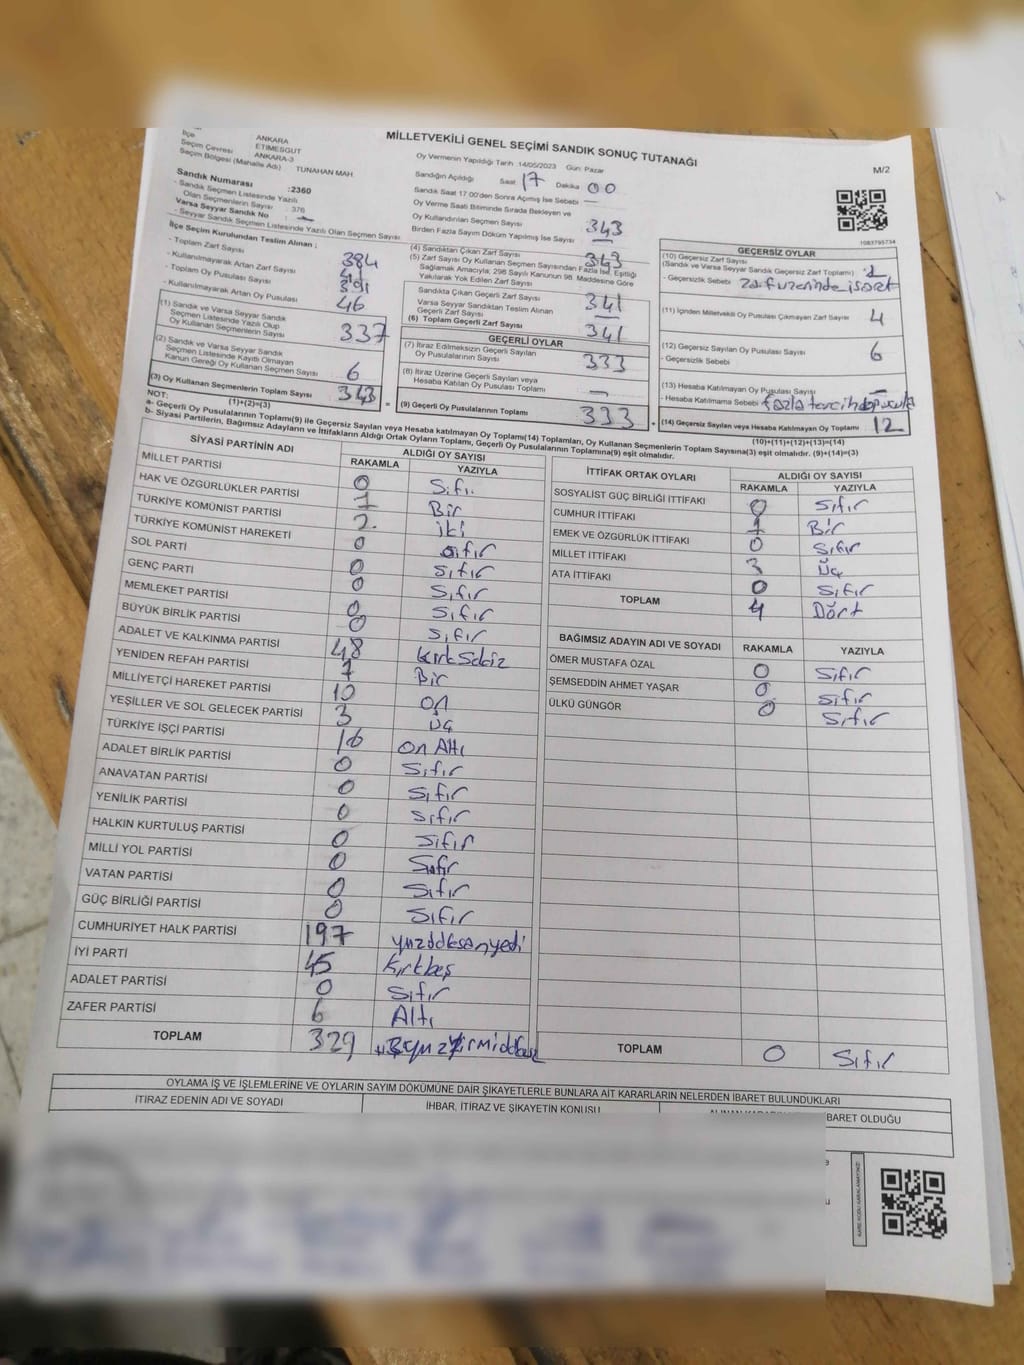 MİLLETVEKİLİ GENEL SEÇİMİ SANDIK SONUÇ TUTANAĞI
M/2
ANKARA
İlçe ETİMESGUT
Seçim Çevresi ANKARA-3
Seçim Bölgesi (Mahalle Adı) TUNAHAN MAH.
Sandık Numarası :2360
- Sandık Seçmen Listesinde Yazılı
Olan Seçmenlerin Sayısı : 376
Varsa Seyyar Sandık No : –
- Seyyar Sandık Seçmen Listesinde Yazılı Olan Seçmen Sayısı
Oy Vermenin Yapıldığı Tarih 14/05/2023 Gün: Pazar
Sandığın Açıldığı Saat 17 Dakika 00
Sandık Saat 17.00'den Sonra Açılmış İse Sebebi —
Oy Verme Saati Bitiminde Sırada Bekleyen ve
Oy Kullandırılan Seçmen Sayısı
Birden Fazla Sayım Döküm Yapılmış İse Sayısı
343
1083795734
İlçe Seçim Kurulundan Teslim Alınan ;
- Toplam Zarf Sayısı 384
- Kullanılmayarak Artan Zarf Sayısı 41
- Toplam Oy Pusulası Sayısı
- Kullanılmayarak Artan Oy Pusulası 46
(1) Sandık ve Varsa Seyyar Sandık
Seçmen Listesinde Yazılı Olup
Oy Kullanan Seçmenlerin Sayısı 337
(2) Sandık ve Varsa Seyyar Sandık
Seçmen Listesinde Kayıtlı Olmayan
Kanun Gereği Oy Kullanan Seçmen Sayısı 6
(3) Oy Kullanan Seçmenlerin Toplam Sayısı 343
(1)+(2)=(3)
(4) Sandıktan Çıkan Zarf Sayısı 343
(5) Zarf Sayısı Oy Kullanan Seçmen Sayısından Fazla İse, Eşitliği
Sağlamak Amacıyla; 298 Sayılı Kanunun 98. Maddesine Göre
Yakılarak Yok Edilen Zarf Sayısı
Sandıkta Çıkan Geçerli Zarf Sayısı 341
Varsa Seyyar Sandıktan Teslim Alınan
Geçerli Zarf Sayısı —
(6) Toplam Geçerli Zarf Sayısı 341
GEÇERLİ OYLAR
(7) İtiraz Edilmeksizin Geçerli Sayılan
Oy Pusulalarının Sayısı 333
(8) İtiraz Üzerine Geçerli Sayılan veya
Hesaba Katılan Oy Pusulası Toplamı —
(9) Geçerli Oy Pusulalarının Toplamı 333
GEÇERSİZ OYLAR
(10) Geçersiz Zarf Sayısı
(Sandık ve Varsa Seyyar Sandık Geçersiz Zarf Toplamı) :
- Geçersizlik Sebebi zarf üzerinde işaret
(11) İçinden Milletvekili Oy Pusulası Çıkmayan Zarf Sayısı 4
(12) Geçersiz Sayılan Oy Pusulası Sayısı 6
- Geçersizlik Sebebi
(13) Hesaba Katılmayan Oy Pusulası Sayısı –
- Hesaba Katılmama Sebebi fazla tercih
(14) Geçersiz Sayılan veya Hesaba Katılmayan Oy Toplamı 12
(10)+(11)+(12)+(13)=(14)
NOT:
a- Geçerli Oy Pusulalarının Toplamı(9) ile Geçersiz Sayılan veya Hesaba Katılmayan Oy Toplamı(14) Toplamları, Oy Kullanan Seçmenlerin Toplam Sayısına(3) eşit olmalıdır. (9)+(14)=(3)
b- Siyasi Partilerin, Bağımsız Adayların ve İttifakların Aldığı Ortak Oyların Toplamı, Geçerli Oy Pusulalarının Toplamına(9) eşit olmalıdır.
SİYASİ PARTİNİN ADI ALDIĞI OY SAYISI
RAKAMLA YAZIYLA
MİLLET PARTİSİ 0 Sıfı.
HAK VE ÖZGÜRLÜKLER PARTİSİ 1 Bir
TÜRKİYE KOMÜNİST PARTİSİ 2 iki
TÜRKİYE KOMÜNİST HAREKETİ 0 sıfır
SOL PARTİ 0 sıfır
GENÇ PARTİ 0 sıfır
MEMLEKET PARTİSİ 0 sıfır
BÜYÜK BİRLİK PARTİSİ 0 sıfır
ADALET VE KALKINMA PARTİSİ 48 kırksekiz
YENİDEN REFAH PARTİSİ 1 Bir
MİLLİYETÇİ HAREKET PARTİSİ 10 on
YEŞİLLER VE SOL GELECEK PARTİSİ 3 Üç
TÜRKİYE İŞÇİ PARTİSİ 16 on Altı
ADALET BİRLİK PARTİSİ 0 Sıfır
ANAVATAN PARTİSİ 0 Sıfır
YENİLİK PARTİSİ 0 Sıfır
HALKIN KURTULUŞ PARTİSİ 0 Sıfır
MİLLİ YOL PARTİSİ 0 Sıfır
VATAN PARTİSİ 0 Sıfır
GÜÇ BİRLİĞİ PARTİSİ 0 Sıfır
CUMHURİYET HALK PARTİSİ 197 yüzdoksanyedi
İYİ PARTİ 45 Kırkbeş
ADALET PARTİSİ 0 sıfır
ZAFER PARTİSİ 6 Altı
TOPLAM 329
İTTİFAK ORTAK OYLARI ALDIĞI OY SAYISI
RAKAMLA YAZIYLA
SOSYALİST GÜÇ BİRLİĞİ İTTİFAKI 0 Sıfır
CUMHUR İTTİFAKI 1 Bir
EMEK VE ÖZGÜRLÜK İTTİFAKI 0 Sıfır
MİLLET İTTİFAKI 3 Üç
ATA İTTİFAKI 0 Sıfır
TOPLAM 4 Dört
BAĞIMSIZ ADAYIN ADI VE SOYADI RAKAMLA YAZIYLA
ÖMER MUSTAFA ÖZAL 0 Sıfır
ŞEMSEDDİN AHMET YAŞAR 0 Sıfır
ÜLKÜ GÜNGÖR 0 Sıfır
TOPLAM 0 Sıfır
OYLAMA İŞ VE İŞLEMLERİNE VE OYLARIN SAYIM DÖKÜMÜNE DAİR ŞİKAYETLERLE BUNLARA AİT KARARLARIN NELERDEN İBARET BULUNDUKLARI
İTİRAZ EDENİN ADI VE SOYADI İHBAR, İTİRAZ VE ŞİKAYETİN KONUSU BARET OLDUĞU